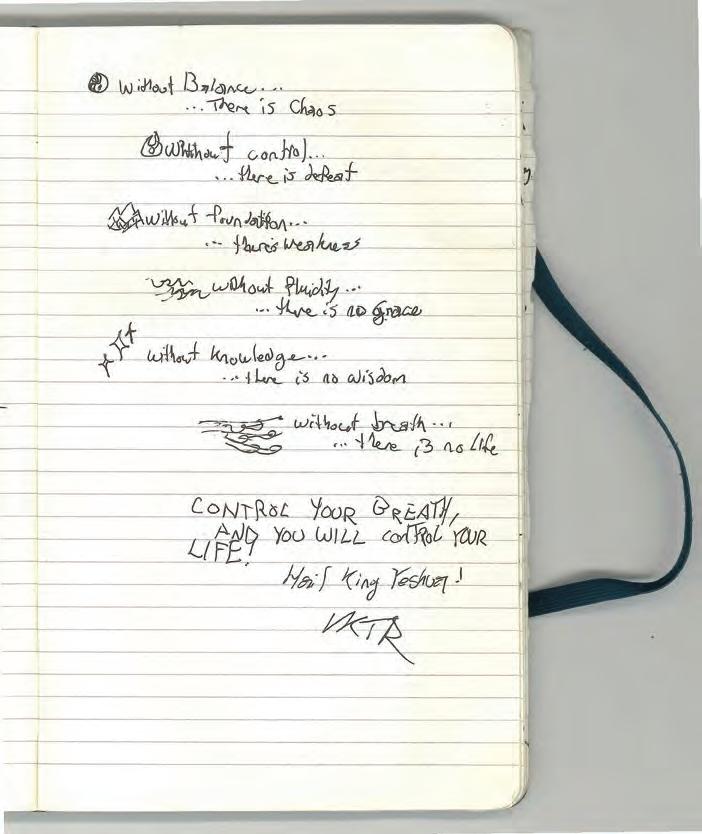 Without Balance...
...There is Chaos
Without control...
...there is defeat
without foundation...
... there's weakness
without fluidity...
... there is no Grace
without knowledge...
... there is no wisdom
without breath...
... there is no Life
CONTROL YOUR BREATH,
AND YOU WILL CONTROL YOUR
LIFE!
Hail King Yeshua!
VKTR